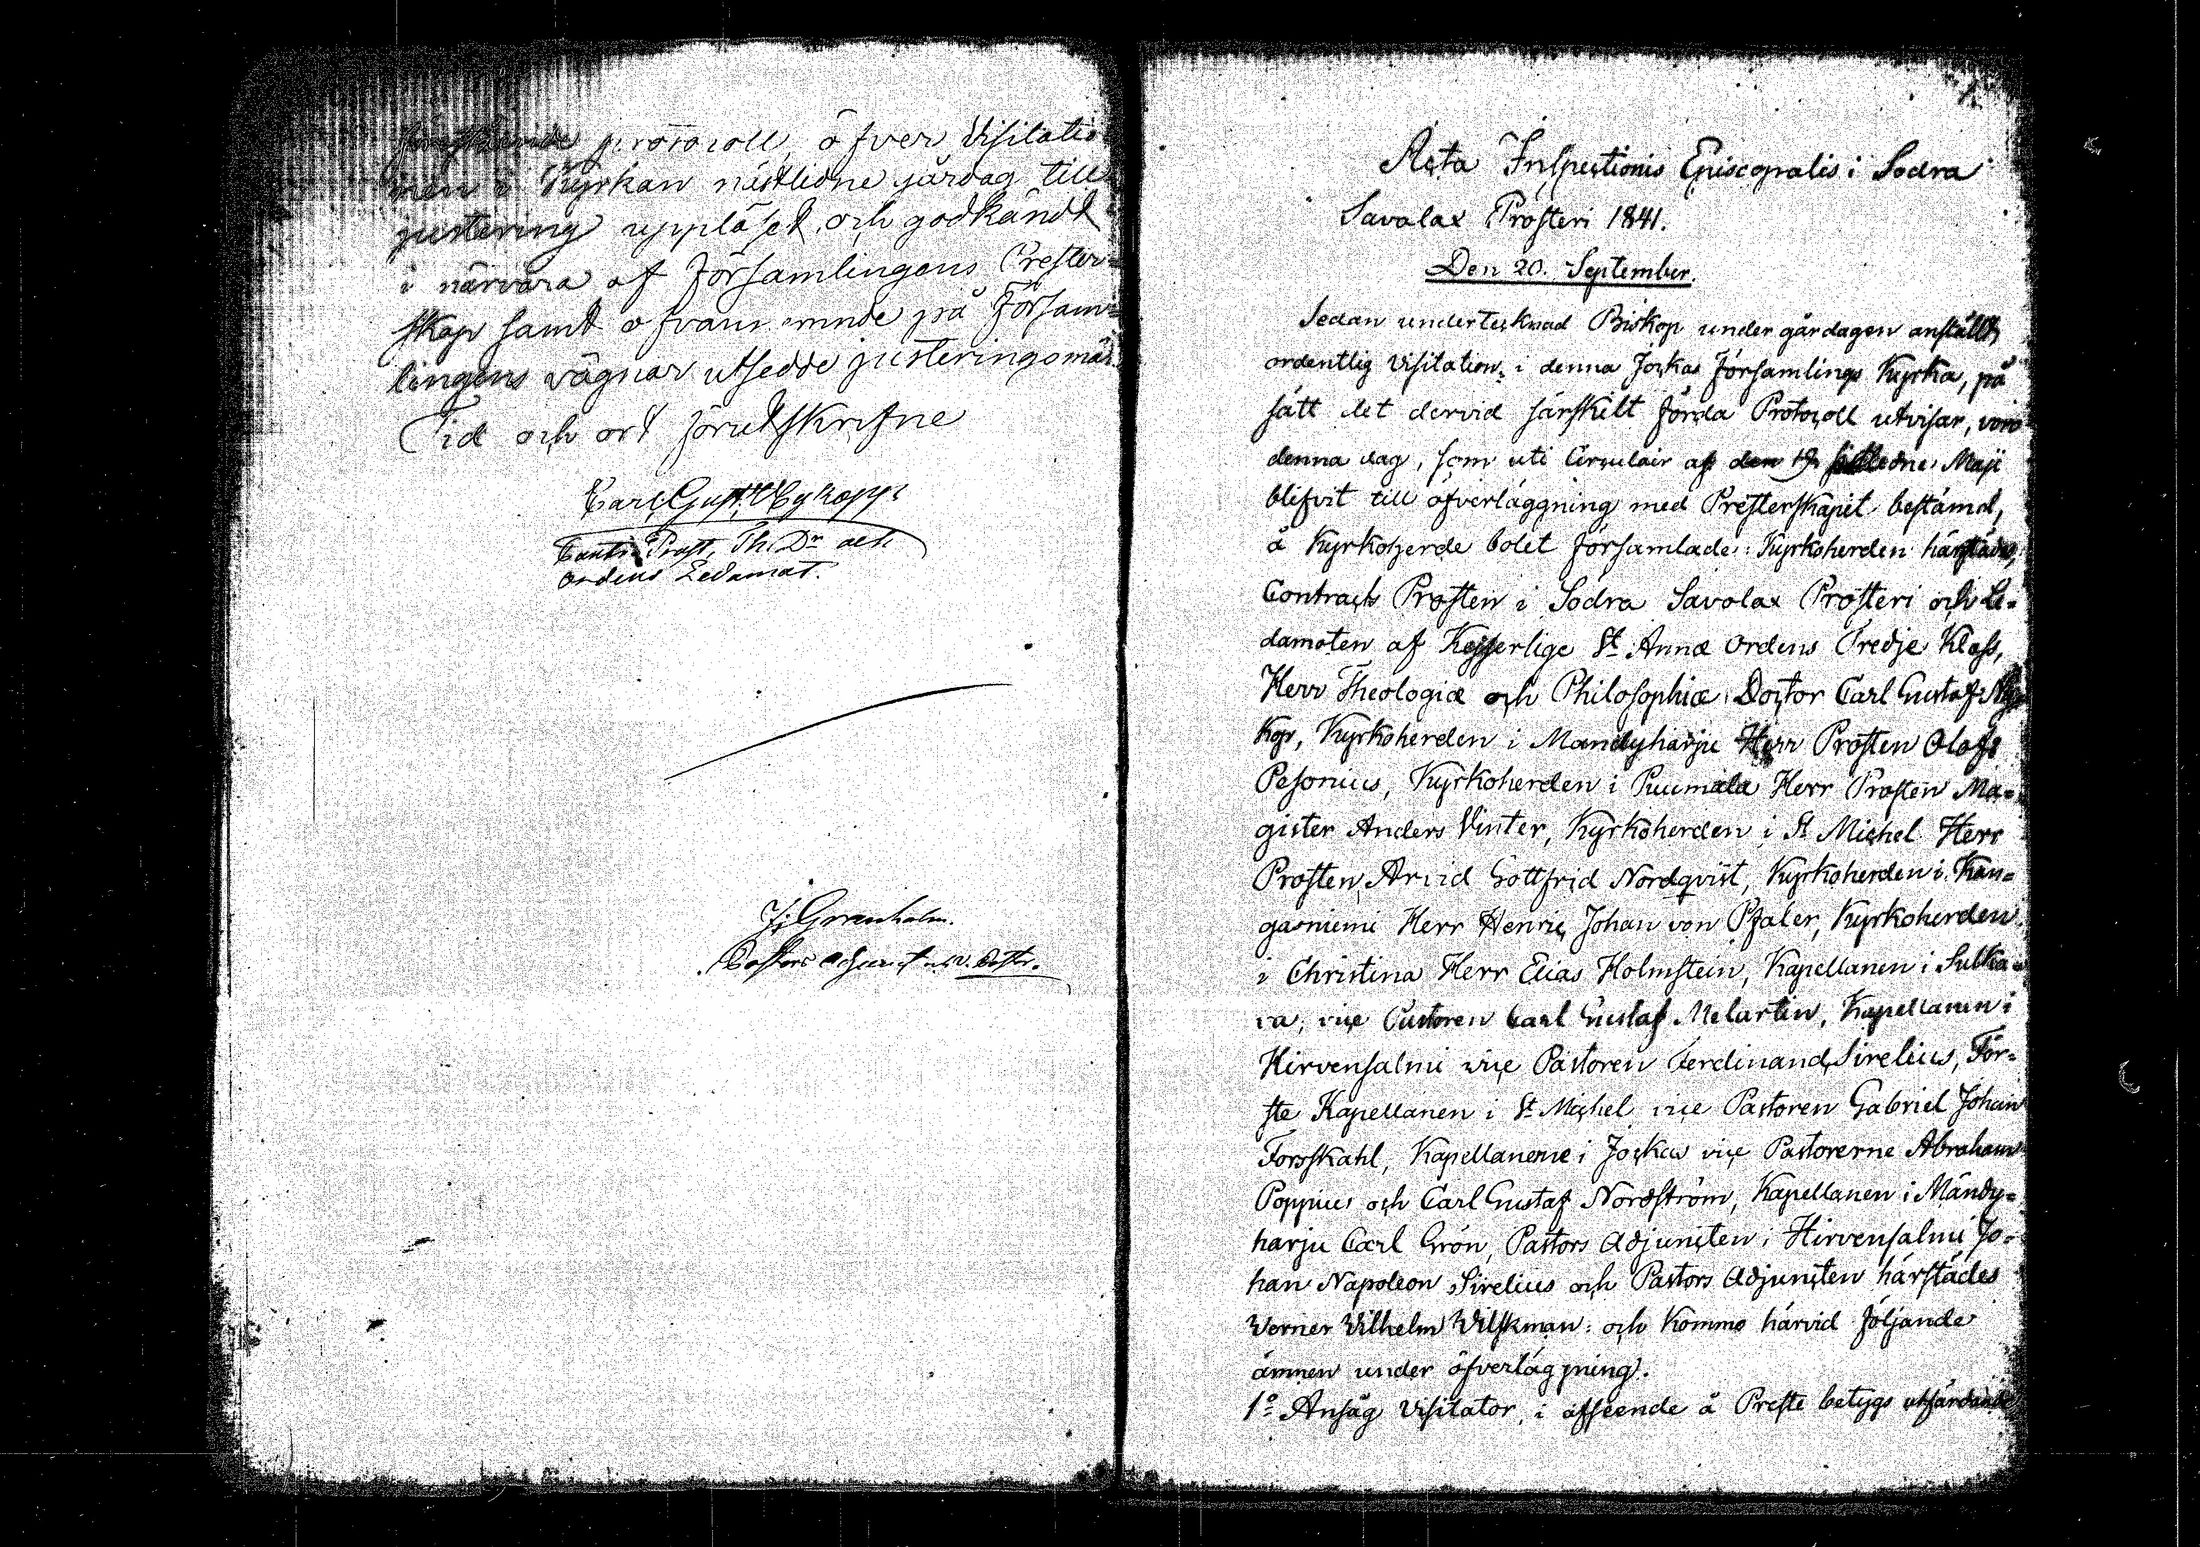 Förestående protocoll öfver Visitatio-
nen i Kyrkan nästledne gårdag till
justering uppläset och godkändt
i närvara af Församlingens Prester-
skap samt ofvannämnde på Försam-
lingens vägnar utsedde justeringsmän.
Tid och ort förutskrifne
Carl Gust. Nykopp
Contr. Prost, Th. Dr och
Ordens Ledamot.
J. Granholm.
Pastors Adjunct
Acta Inspectionis Episcopalis i Södra
Savolax Prosteri 1841.
Den 20. September.
Sedan undertecknad Biskop under gårdagen anställt
ordentlig Visitation i denna Jockas Församlings Kyrka, på
sätt det dervid särskilt förda Protocoll utvisar, voro
denna dag, som uti Circulair af den 19 sistledne Maji
blifvit till öfverläggning med Presterskapet bestämd,
å Kyrkoherde bolet församlade: Kyrkoherden härstädes,
Contracts Prosten i Södra Savolax Prosteri och Le-
damoten af Kejserlige St. Annæ Ordens Tredje Klass,
Herr Theologiæ och Philosophiæ Doctor Carl Gustaf Ny-
kop, Kyrkoherden i Mändyharju Herr Prosten Olof
Pesonius, Kyrkoherden i Puumala Herr Prosten Ma-
gister Anders Vinter, Kyrkoherden i St Michel Herr
Prosten Arvid Gottfrid Nordqvist, Kyrkoherden i Kan-
gasniemi Herr Henric Johan von Pfaler, Kyrkoherden
i Christina Herr Elias Holmstein, Kapellanen i Sulka-
va, vice Pastoren Carl Gustaf Melartin, Kapellanen i
Hirvensalmi vice Pastoren Ferdinand Sirelius, För-
ste Kapellanen i St Michel vice Pastoren Gabriel Johan
Forsskahl, Kapellanerne i Jockas vice Pastorerne Abraham
Poppius och Carl Gustaf Nordström, Kapellanen i Mändy-
harju Carl Grön, Pastors Adjuncten i Hirvensalmi Jo-
han Napoleon Sirelius och Pastors Adjuncten härstädes
Werner Vilhelm Wilskman: och kommo härvid följande
ämnen under öfverläggning.
1o Ansåg Visitator, i afseende å Preste betygs utfärdande